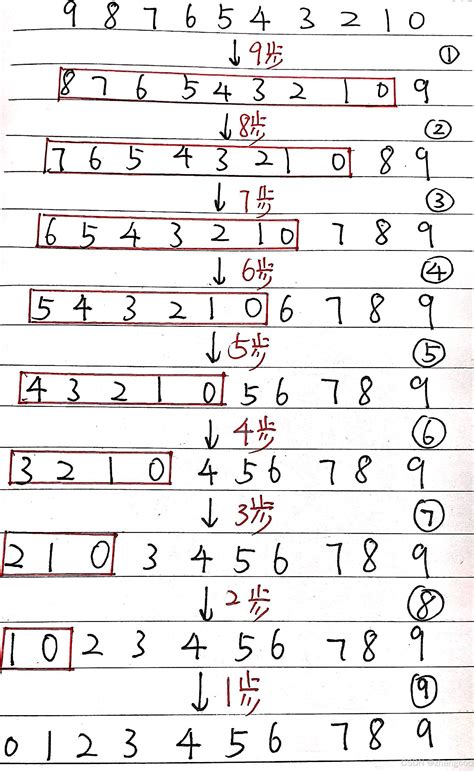 9 8 7 6 5 4 3 2 1 0
↓ 9步 ①
8 7 6 5 4 3 2 1 0 9
↓ 8步 ②
7 6 5 4 3 2 1 0 8 9
↓ 7步 ③
6 5 4 3 2 1 0 7 8 9
↓ 6步 ④
5 4 3 2 1 0 6 7 8 9
↓ 5步 ⑤
4 3 2 1 0 5 6 7 8 9
↓ 4步 ⑥
3 2 1 0 4 5 6 7 8 9
↓ 3步 ⑦
2 1 0 3 4 5 6 7 8 9
↓ 2步 ⑧
1 0 2 3 4 5 6 7 8 9
↓ 1步 ⑨
0 1 2 3 4 5 6 7 8 9
CSDN